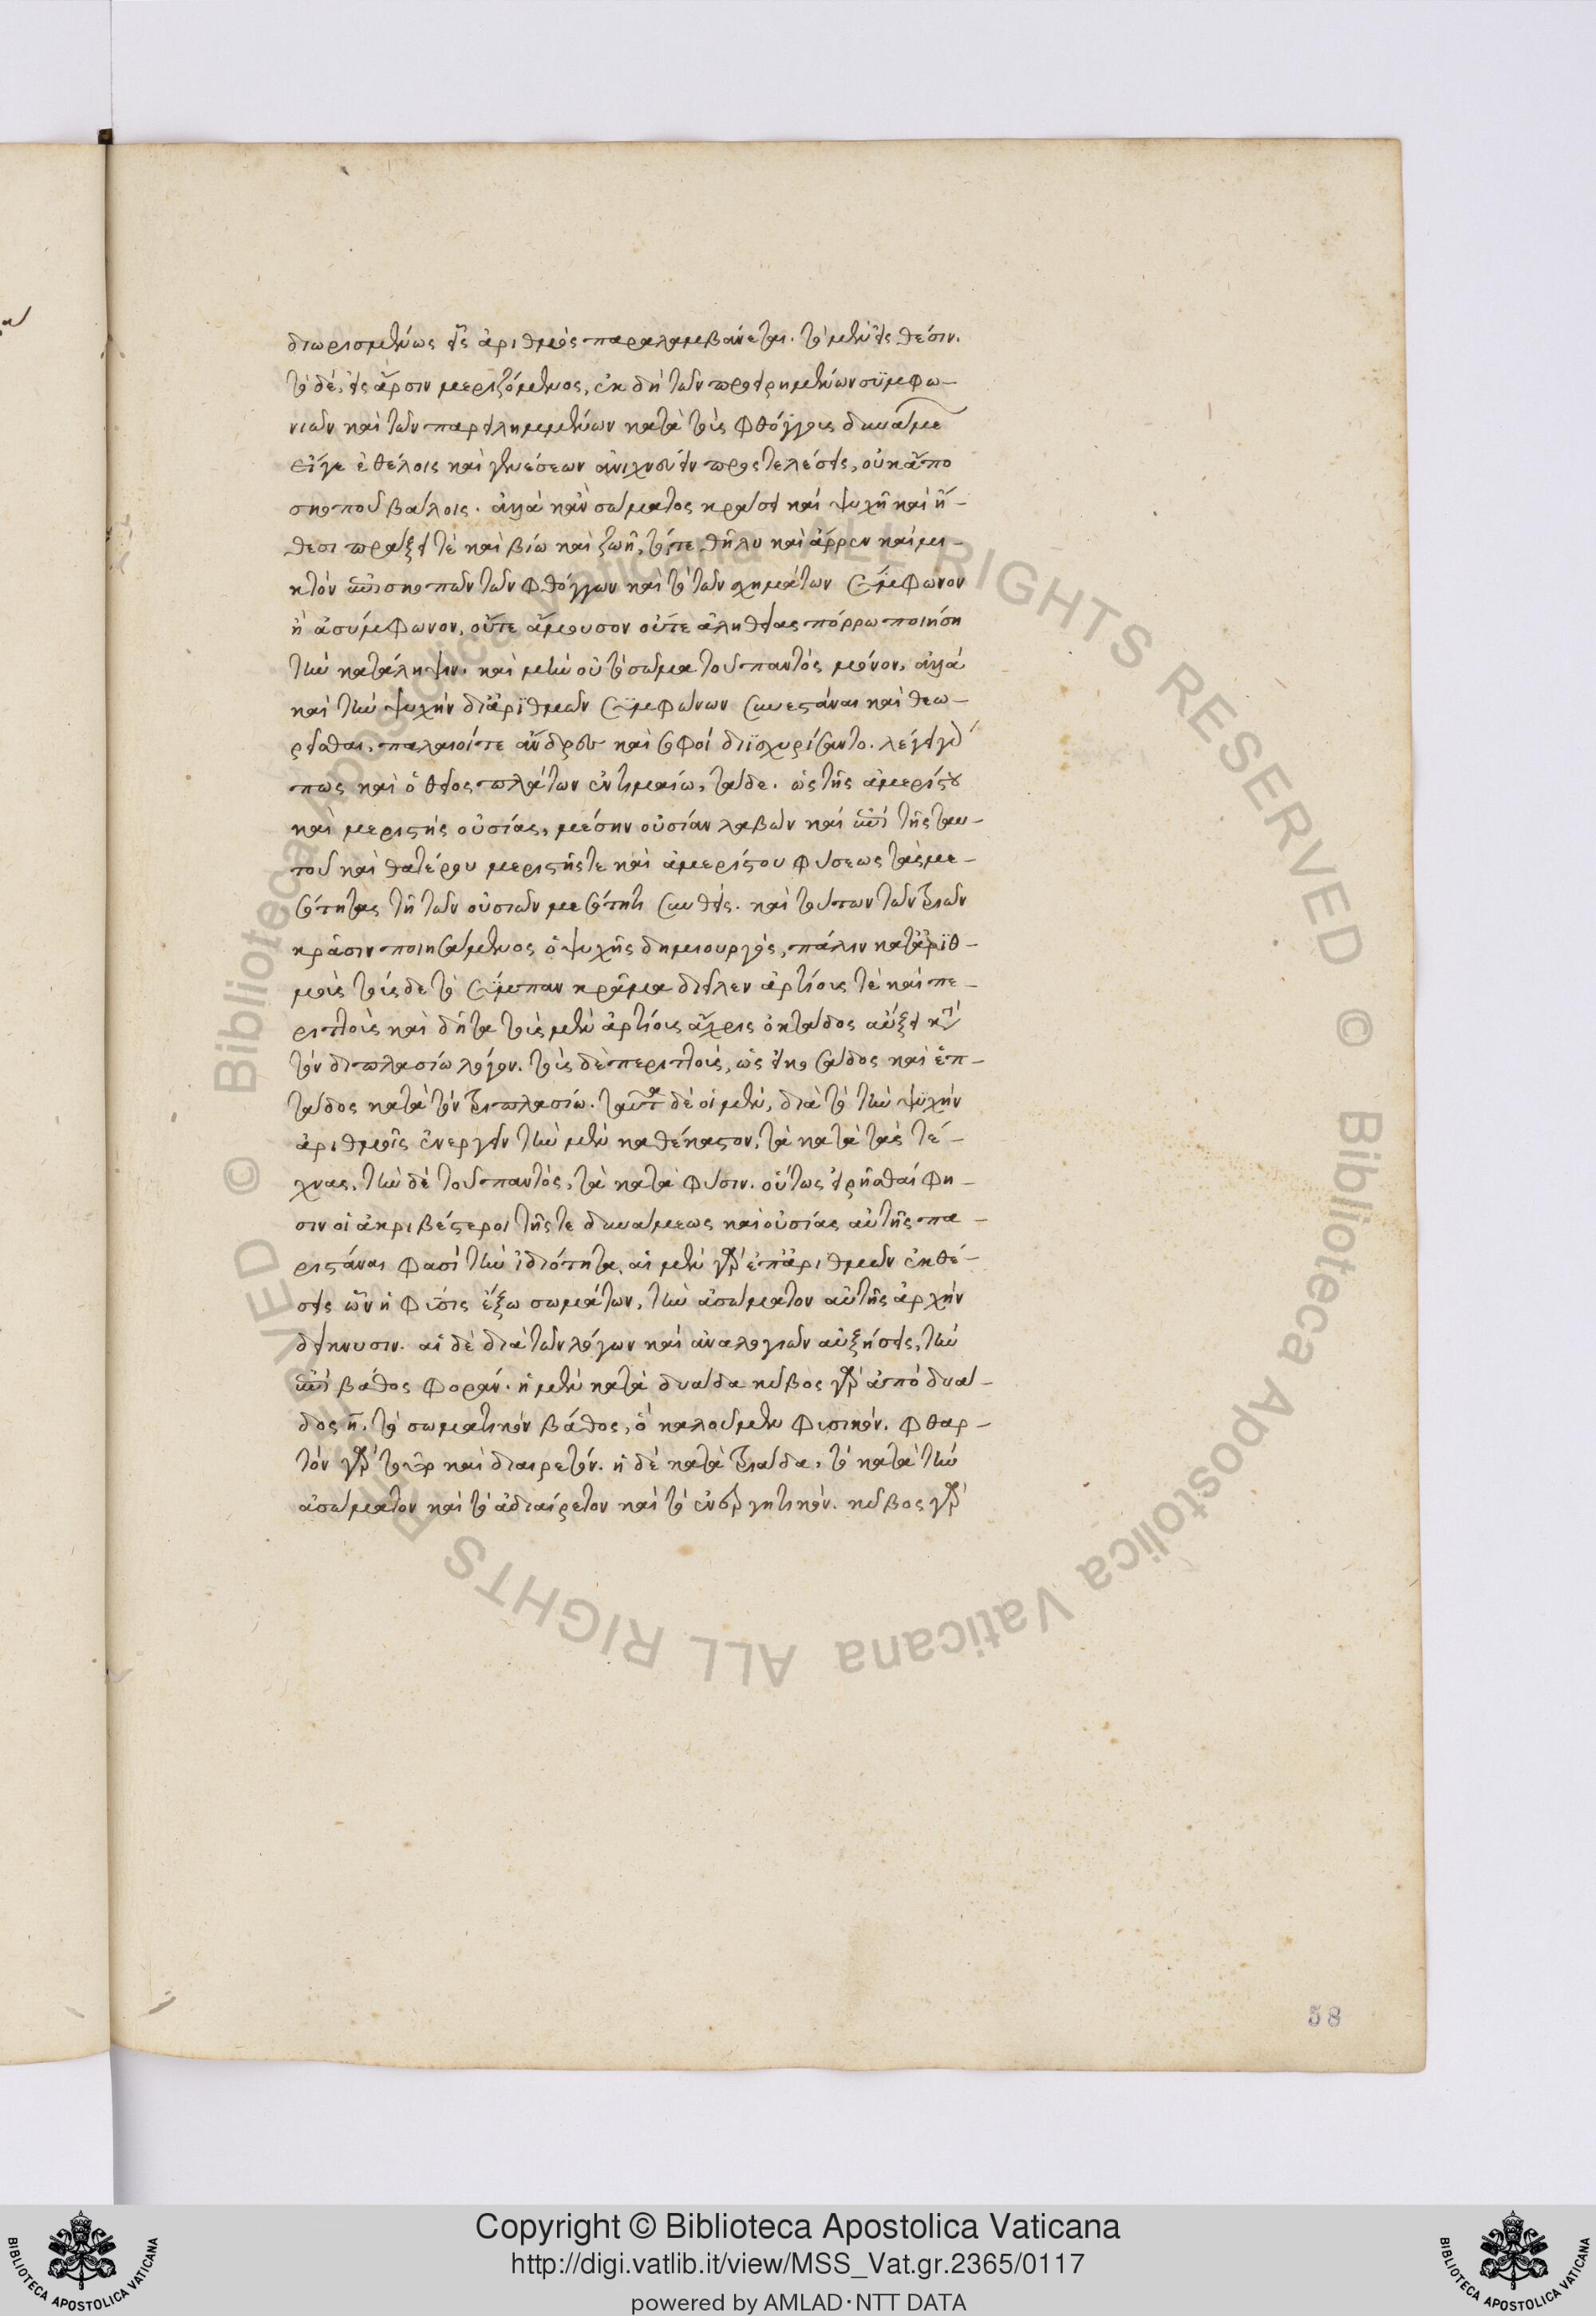 διωρισμένως εἷς ἀριθμὸς παραλαμβάνεται. τὸ μὲν εἰς θέσιν.
τὸ δὲ, εἰς ἄρσιν μεριζόμενος, ἐκ δὴ τῶν προειρημένων συμφω-
νιῶν καὶ τῶν παρειλημμένων κατὰ τοὺς φθόγγους δυνάμε
εἴγε ἐθέλοις καὶ γενέσεων ἀνιχνεύειν προςτελέσεις, οὐκ ἄπο
σκοποῦ βάλοις. ἀλλὰ κἂν σώματος κράσει καὶ ψυχῆ καὶ ἤ-
θεσι πράξει τὲ καὶ βίω καὶ ζωῆ, τότε θῆλυ καὶ ἄρρεν καὶ μι-
κτὸν ἐπισκοπῶν τῶν φθόγγων καὶ τὸ τῶν σχημάτων σύμφωνον
ἢ ἀσύμφωνον, οὔτε ἄμουσον οὔτε ἀληθείας πόρρω ποιήση
τὴν κατάληψιν. καὶ μὴν οὐ τὸ σῶμα τοῦ παντὸς μόνον, ἀλλὰ
καὶ τὴν ψυχὴν δι ἀριθμῶν συμφώνων συνεστάναι καὶ θεω-
ρεῖσθαι, παλαιοί τε ἄνδρες καὶ σοφοὶ διϊσχυρίσαντο. λέγει γὰρ
πως καὶ ὁ θεῖος πλάτων ἐν τιμαίω, τάδε. ὡς τῆς ἀμερίστου
καὶ μεριστῆς οὐσίας, μέσην οὐσίαν λαβὼν καὶ ἐπὶ τῆς ταυ-
τοῦ καὶ θατέρου μεριστῆς τε καὶ ἀμερίστου φύσεως τὰς με-
σότητας τῆ τῶν οὐσιῶν μεσότητι συνθεὶς. καὶ τούτων τῶν τριῶν
κρᾶσιν ποιησάμενος ὁ ψυχῆς δημιουργὸς, πάλιν κατ ἀριθ-
μοὺς τούς δε τὸ σύμπαν κρᾶμα διεῖλεν ἀρτίους τὲ καὶ πε-
ριττοὺς καὶ δῆτα τοὺς μὲν ἀρτίους ἄχρις ὀκτάδος αὔξει κατὰ
τὸν διπλασίω λόγον. τοὺς δὲ περιττοὺς, ὡς εἰκοσάδος καὶ ἑπ-
τάδος κατὰ τὸν τριπλασίω. ταῦτα δὲ οἱ μὲν, διὰ τὸ τὴν ψυχὴν
ἀριθμοῖς ἐνεργεῖν τὴν μὲν καθέκαστον, τὰ κατὰ τὰς τέ-
χνας, τὴν δὲ τοῦ παντὸς, τὰ κατὰ φύσιν. οὕτως εἰρῆσθαί φη-
σιν οἱ ἀκριβέστεροι τῆς τε δυνάμεως καὶ οὐσίας αὐτῆς πα-
ριστάναι φασὶ τὴν ἰδιότητα, αἱ μὲν γὰρ ἐπ ἀριθμῶν ἐκθέ-
σεις ὧν ἡ φύσις ἔξω σωμάτων, τὴν ἀσώματον αὐτῆς ἀρχὴν
δείκνυσιν. αἱ δὲ διὰ τῶν λόγων καὶ ἀναλογιῶν αὐξήσεις, τὴν
ἐπὶ βάθος φοράν. ἡ μὲν κατὰ δυάδα κύβος γὰρ ἀπὸ δυά-
δος η. τὸ σωματικὸν βάθος, ὃ καλοῦμεν φυσικόν. φθαρ-
τὸν γὰρ τοῦτο καὶ διαιρετόν. ἡ δὲ κατὰ τριάδα, τὸ κατὰ τὴν
ἀσώματον καὶ τὸ ἀδιαίρετον καὶ τὸ ἐνεργητικόν. κύβος γὰρ
58
Copyright © Biblioteca Apostolica Vaticana
http://digi.vatlib.it/view/MSS_Vat.gr.2365/0117
powered by AMLAD·NTT DATA